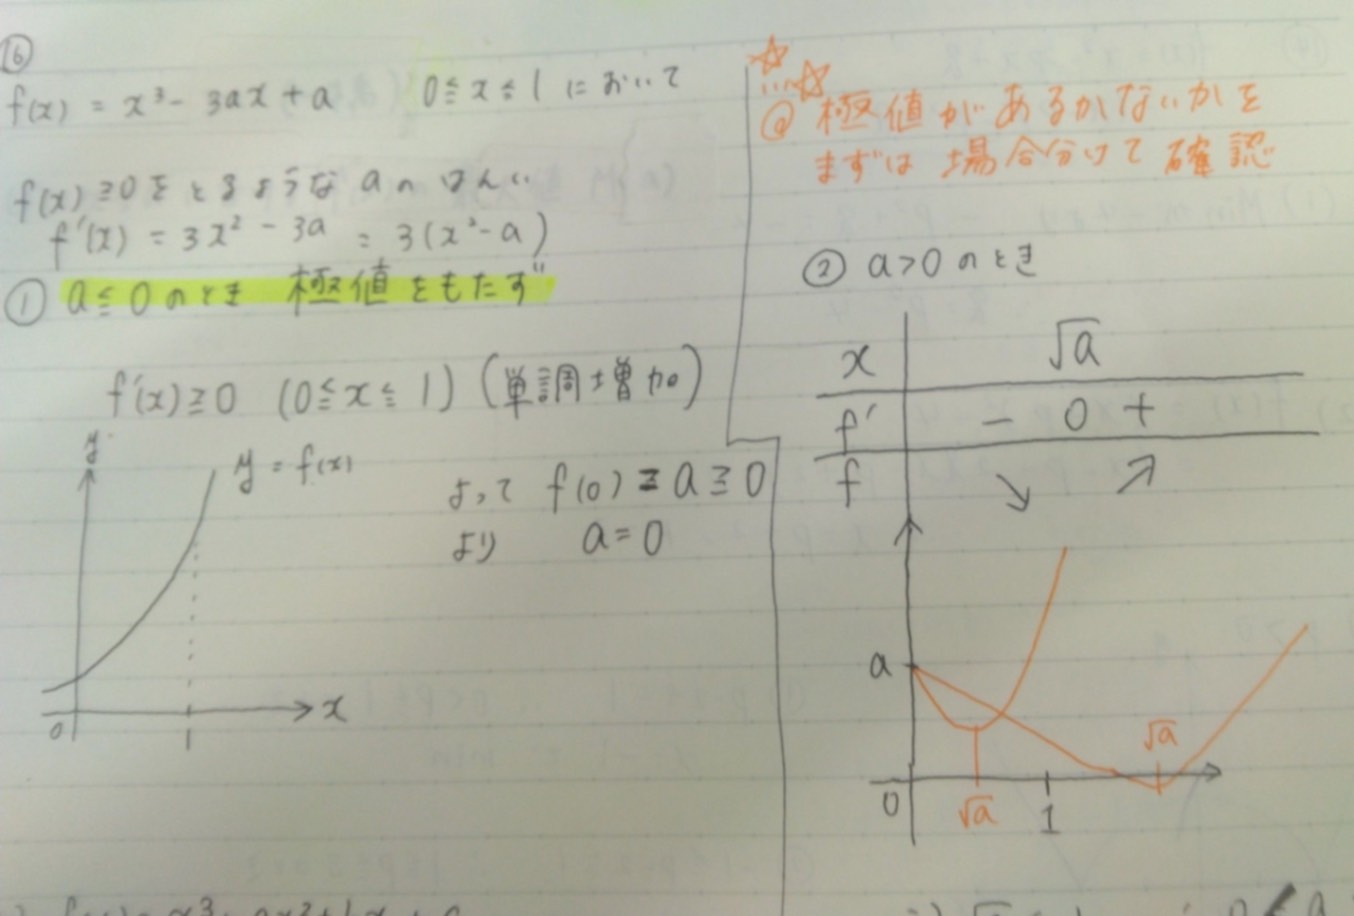 ⑯
f(x) = x³ - 3ax + a 0≦x≦1 において
f(x)≧0をとるような a の はんい
f'(x) = 3x² - 3a = 3(x²-a)
① a≦0のとき 極値をもたず
f'(x)≧0 (0≦x≦1) (単調増加)
y
y = f(x)
よって f(0) = a≧0
より a=0
0
1
x
☆…☆
◎ 極値があるかないかを
まずは場合分けて確認
② a>0のとき
x √a
f' - 0 +
f ↘ ↗
a
√a
0
√a
1